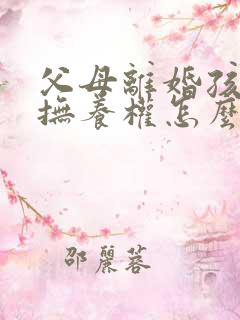 父母離婚孩
撫養權怎麼
邵麗蓉